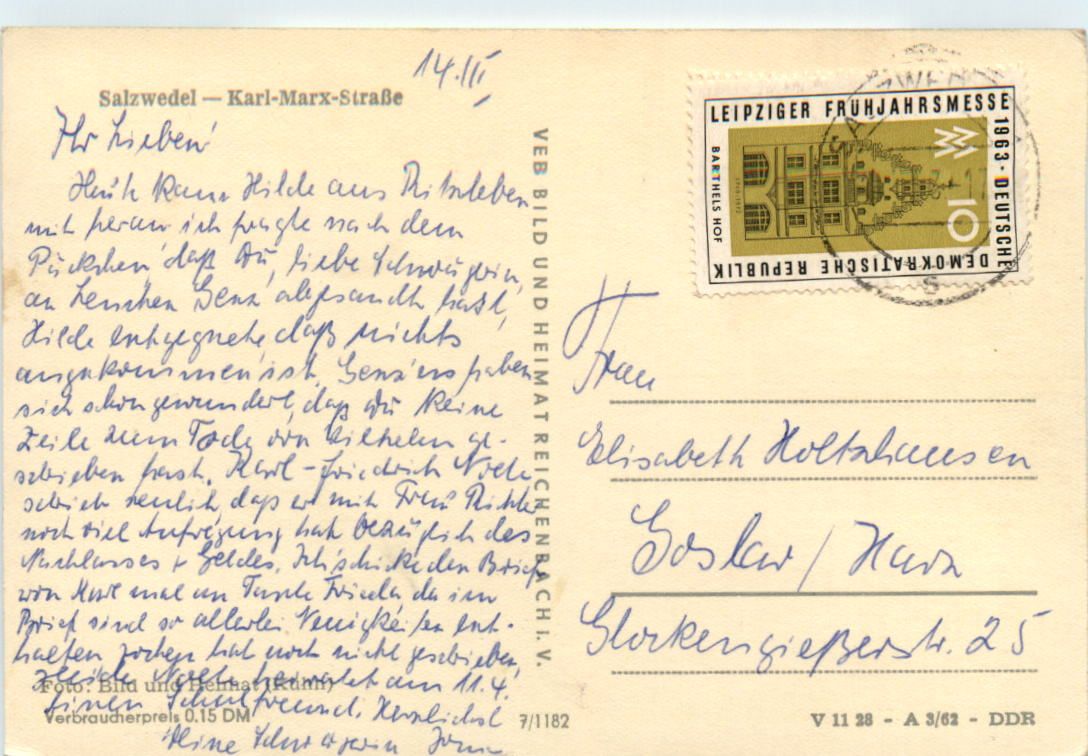 14.III
Salzwedel — Karl-Marx-Straße
Ihr Lieben!
Heute kam Hilde aus Ritzleben
mit heran, ich fragte nach dem
Päckchen, daß Du, liebe Schwägerin,
an Lenchen Genz abgesandt hast,
Hilde entgegnete, daß nichts
angekommen ist. Genz'ens haben
sich schon gewundert, daß Du keine
Zeile zum Tode von Wilhelm ge-
schrieben hast. Karl-Friedrich Nolte
schrieb neulich, daß er mit Frau
noch viel Aufregung hat bezüglich des
Nachlasses + Geldes. Ich schicke den Brief
von Karl mal an Tante Frieda, da im
Brief sind so allerlei Neuigkeiten ent-
halten, Jochen hat noch nicht geschrieben,
Nolte heiratet am 11.4.
Einen Schulfreund. Herzlichst
Deine Schwägerin
Foto: Bild und Heimat
Verbraucherpreis 0.15 DM
7/1182
VEB BILD UND HEIMAT REICHENBACH I. V.
LEIPZIGER FRÜHJAHRSMESSE 1963 · DEUTSCHE DEMOKRATISCHE REPUBLIK
BARTHELS HOF
10
Frau
Elisabeth Holtzhausen
Goslar / Harz
Glockengießerstr. 25
V 11 28 - A 3/62 - DDR